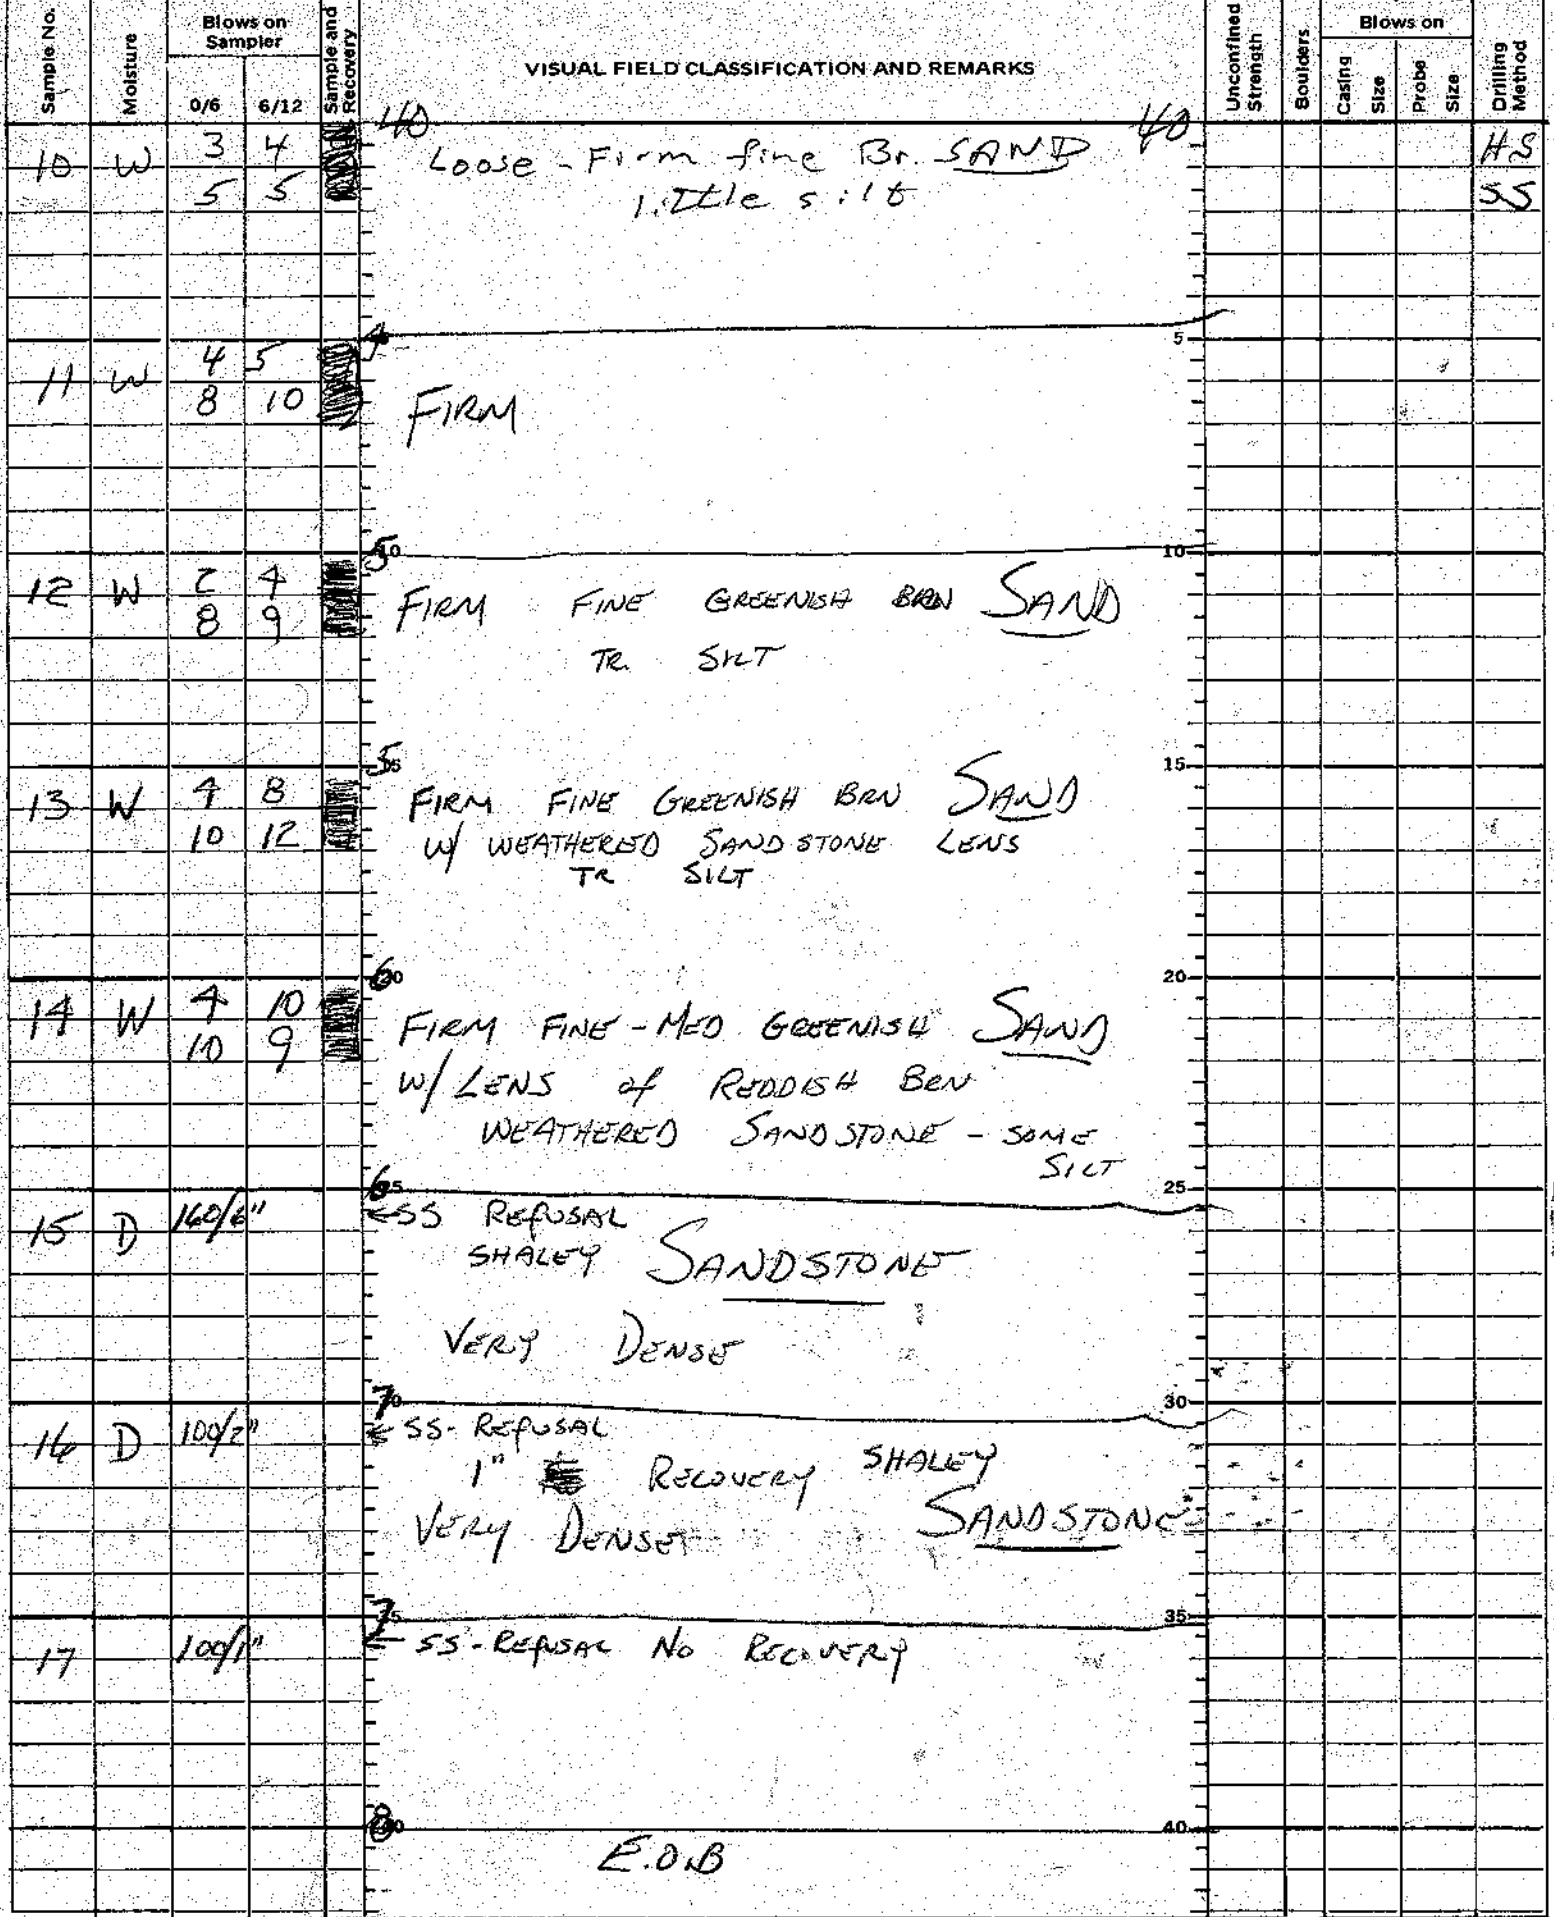 Sample No.
Moisture
Blows on
Sampler
0/6 6/12
Sample and
Recovery
VISUAL FIELD CLASSIFICATION AND REMARKS
Unconfined
Strength
Boulders
Blows on
Casing
Size
Probe
Size
Drilling
Method
40 40
10 W 3 4 Loose - Firm fine Br. SAND HS
5 5 little silt SS
5
11 W 4 5
8 10 FIRM
50 10
12 W 2 4 FIRM FINE GREENISH BRN SAND
8 9
TR. SILT
55 15
13 W 4 8 FIRM FINE GREENISH BRN SAND
10 12 W/ WEATHERED SANDSTONE LENS
TR SILT
60 20
14 W 4 10 FIRM FINE - MED GREENISH SAND
10 9
W/ LENS of REDDISH BRN
WEATHERED SANDSTONE - SOME
SILT
65 25
15 D 160/6" ←SS REFUSAL
SHALEY SANDSTONE
VERY DENSE
70 30
16 D 100/2" ← SS- REFUSAL
1" RECOVERY SHALEY
VERY DENSE SANDSTONE
75 35
17 100/1" ← SS- REFUSAL NO RECOVERY
80 40
E.O.B